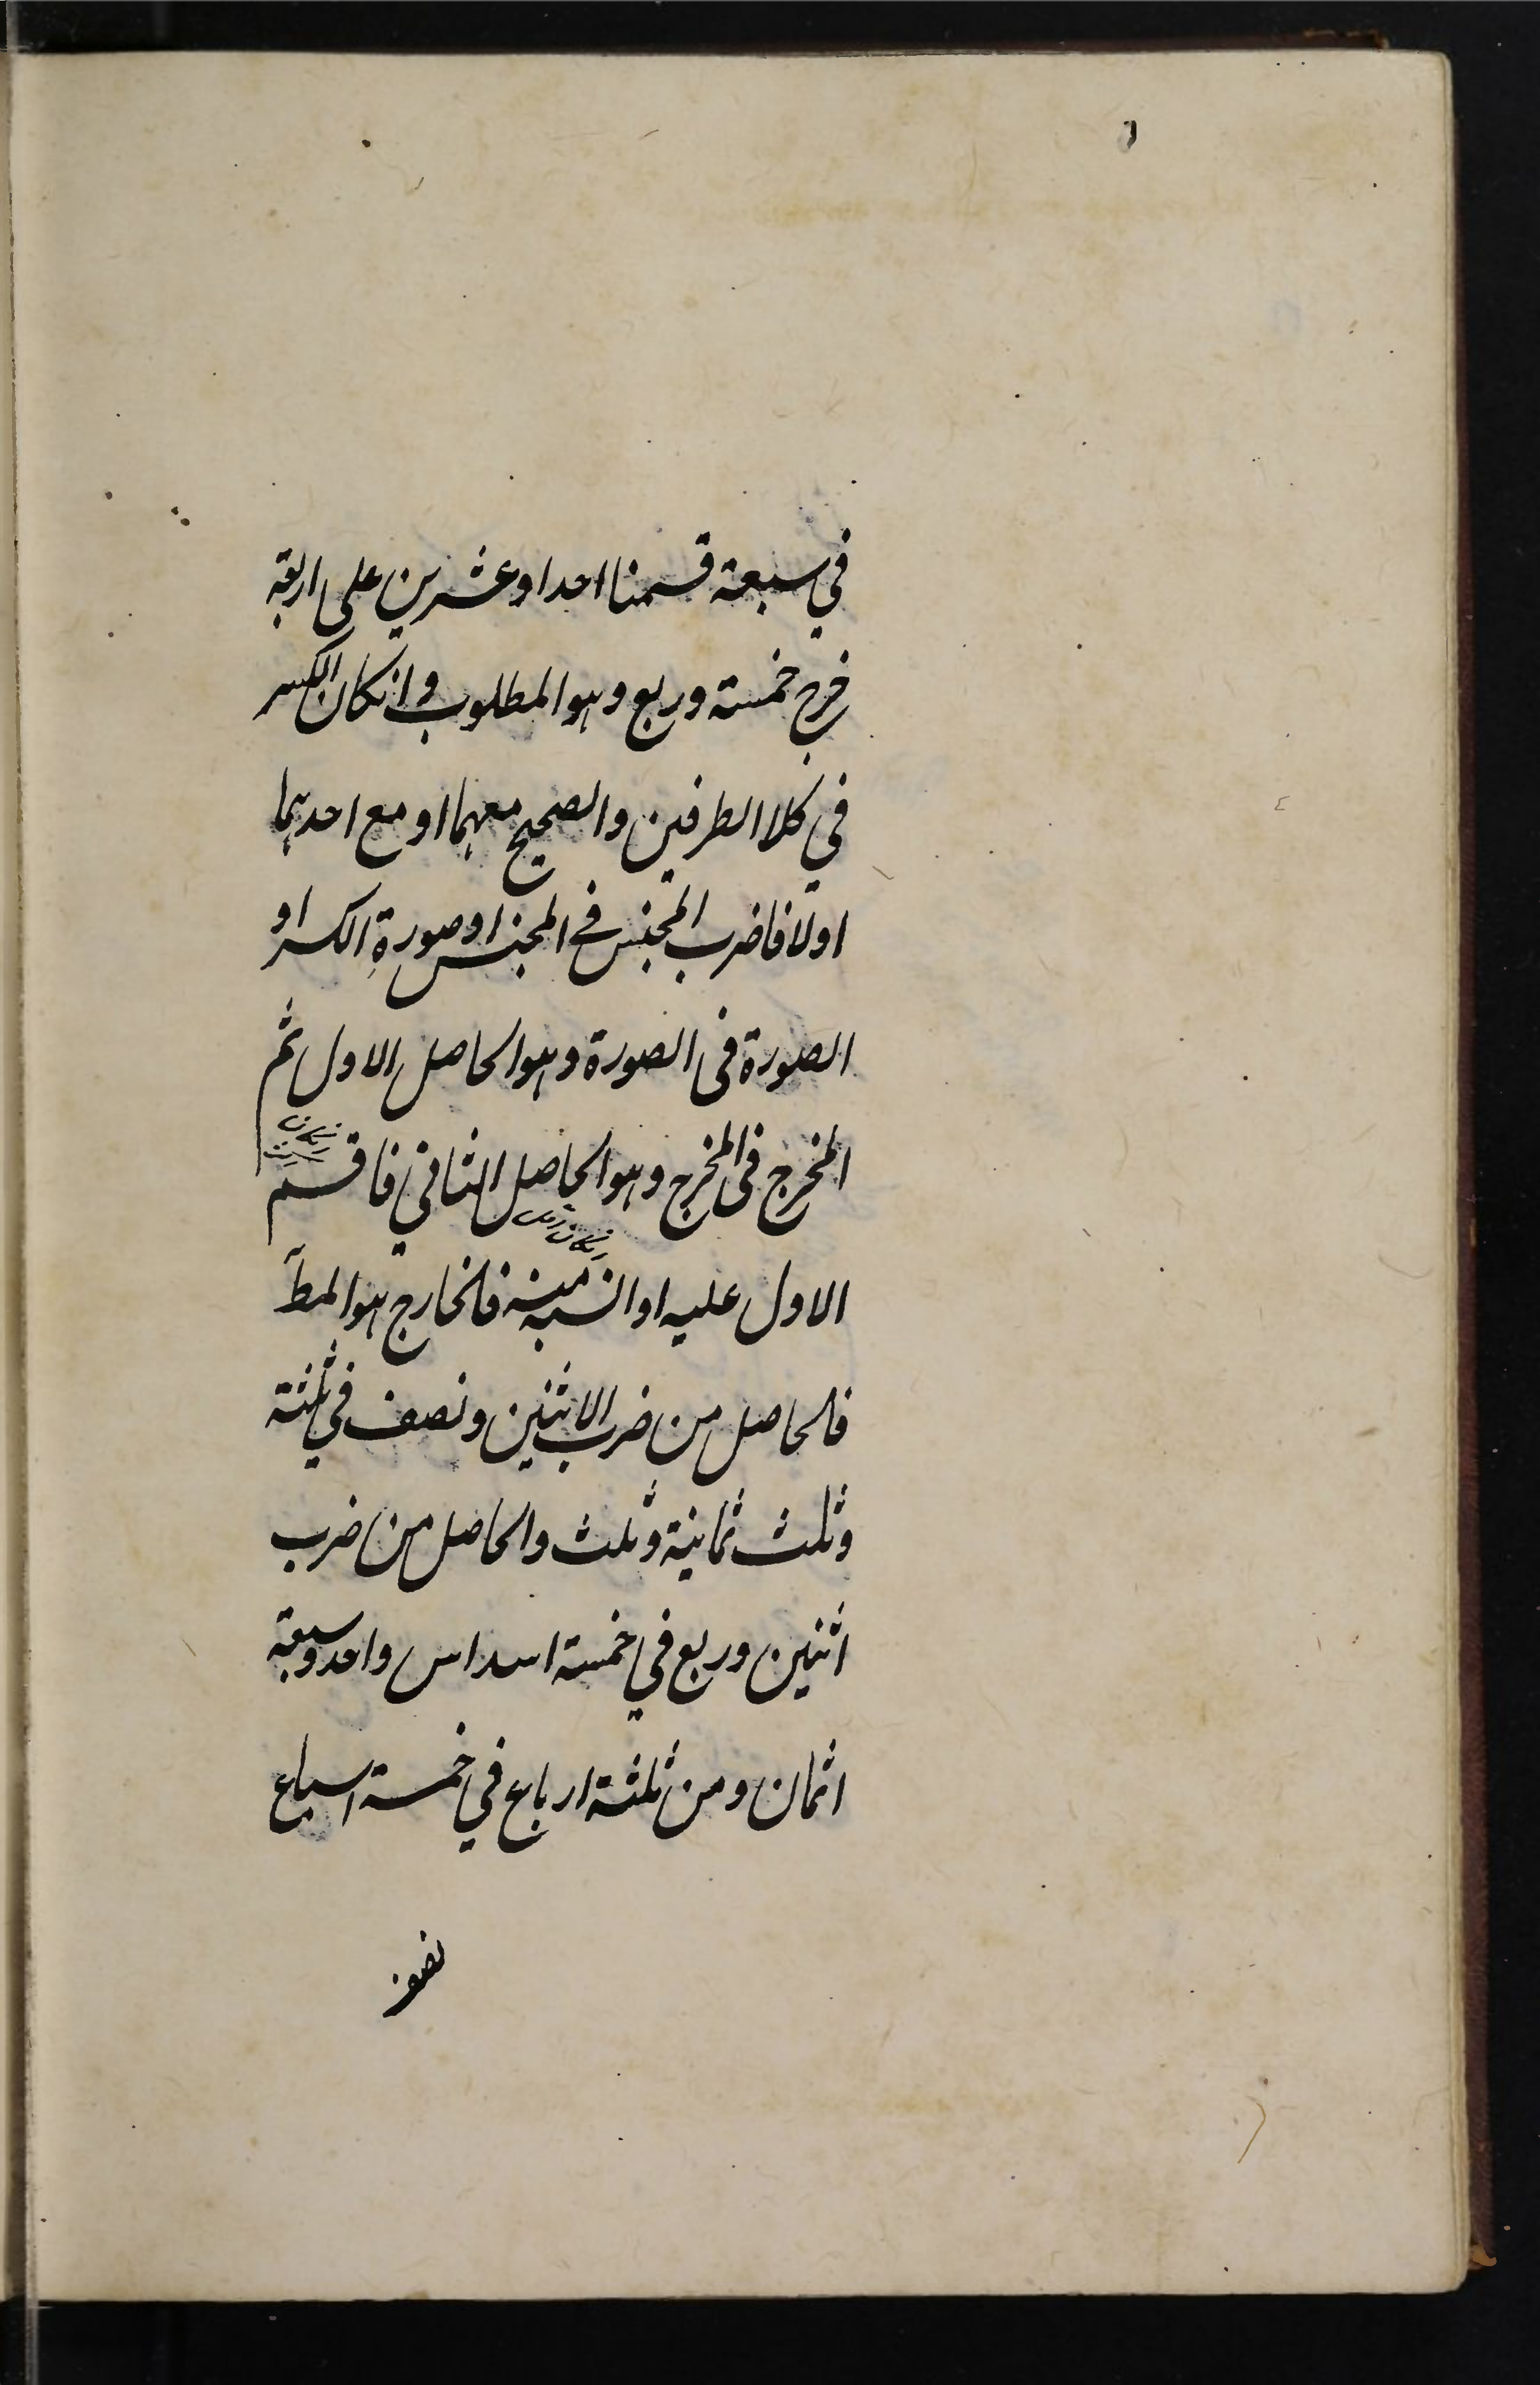 في سبعة قسمنا احدا وعشرين على اربعة
خرج خمسة وربع وهو المطلوب وانكان الكسر
في كلا الطرفين والصحيح معهما او مع احدهما
اولا فاضرب المجنس في المجنس او صورة الكسر او
الصورة في الصورة وهو الحاصل الاول ثم
المخرج في المخرج وهو الحاصل الثاني فاقسم
انكان
الاول عليه او انسبه منه فالخارج هو المط
انكان اقل
فالحاصل من ضرب الاثنين ونصف في ثلثة
وثلث ثمانية وثلث والحاصل من ضرب
اثنين وربع في خمسة اسداس واحد وسبعة
اثمان ومن ثلثة ارباع في خمسة اسباع
نصف